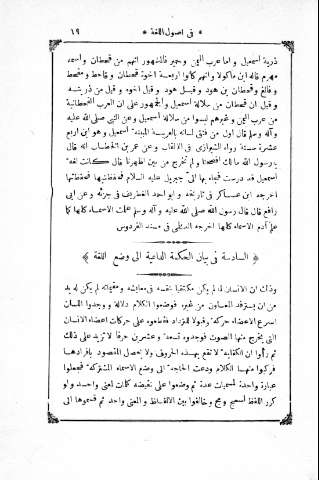 * فى اصول اللغة *
١٩
ذرية اسمعيل واما عرب اليمن وحمير فالمشهور انهم من قحطان واسمه
مهزم قاله ابن ماكولا وانهم كانوا اربعة اخوة قحطان و قاحط ومقحط
و فالغ وقحطان بن هود وقيل هود وقيل اخوه و قيل من ذريته
و قيل ان قحطان من سلالة اسمعيل والجمهور على ان العرب القحطانية
من عرب اليمن و غيرهم ليسوا من سلالة اسمعيل وعن النبى صلى الله عليه
وآله وسلم قال اول من فتق لسانه بالعربية المبينة اسمعيل و هو ابن اربع
عشرة سنة رواه الشيرازى فى الالقاب وعن عمر بن الخطاب انه قال
يا رسول الله مالك افصحنا ولم تخرج من بين اظهرنا قال كانت لغة
اسمعيل قد درست فجاء بها الى جبريل عليه السلام فحفظنيها فحفظتها
اخرجه ابن عساكر فى تاريخه و ابو احمد الغطريف فى جزئه و عن ابى
رافع قال قال رسول الله صلى الله عليه و آله وسلم علمت الاسماء كلها كما
علم آدم الاسماء كلها اخرجه الديلمى فى مسند الفردوس
﴿ السادسة فى بيان الحكمة الداعية الى وضع اللغة ﴾
وذلك ان الانسان لما لم يكن مكتفيا بنفسه فى معايشه و مقيماته لم يكن له بد
من ان يسترفد المعاون من غيره فوضعوا الكلام دلالة و وجدوا اللسان
اسرع الاعضاء حركة وقبولا للترداد فقطعوه على حركات اعضاء الانسان
التى يخرج منها الصوت فوجدوه تسعة و عشرين حرفا لا تزيد على ذلك
ثم رأوا ان الكفاية لا تقع بهذه الحروف ولا يحصل المقصود بافرادها
فركبوا منها الكلام ودعت الحاجة الى وضع الاسماء المشتركة فجعلوا
عبارة واحدة لمسميات عدة ثم وضعوا على نقيضه كلمات لمعنى واحد و لو
كرر اللفظ لسمج و مج و خالفوا بين الالفاظ و المعنى واحد ثم قسموها الى